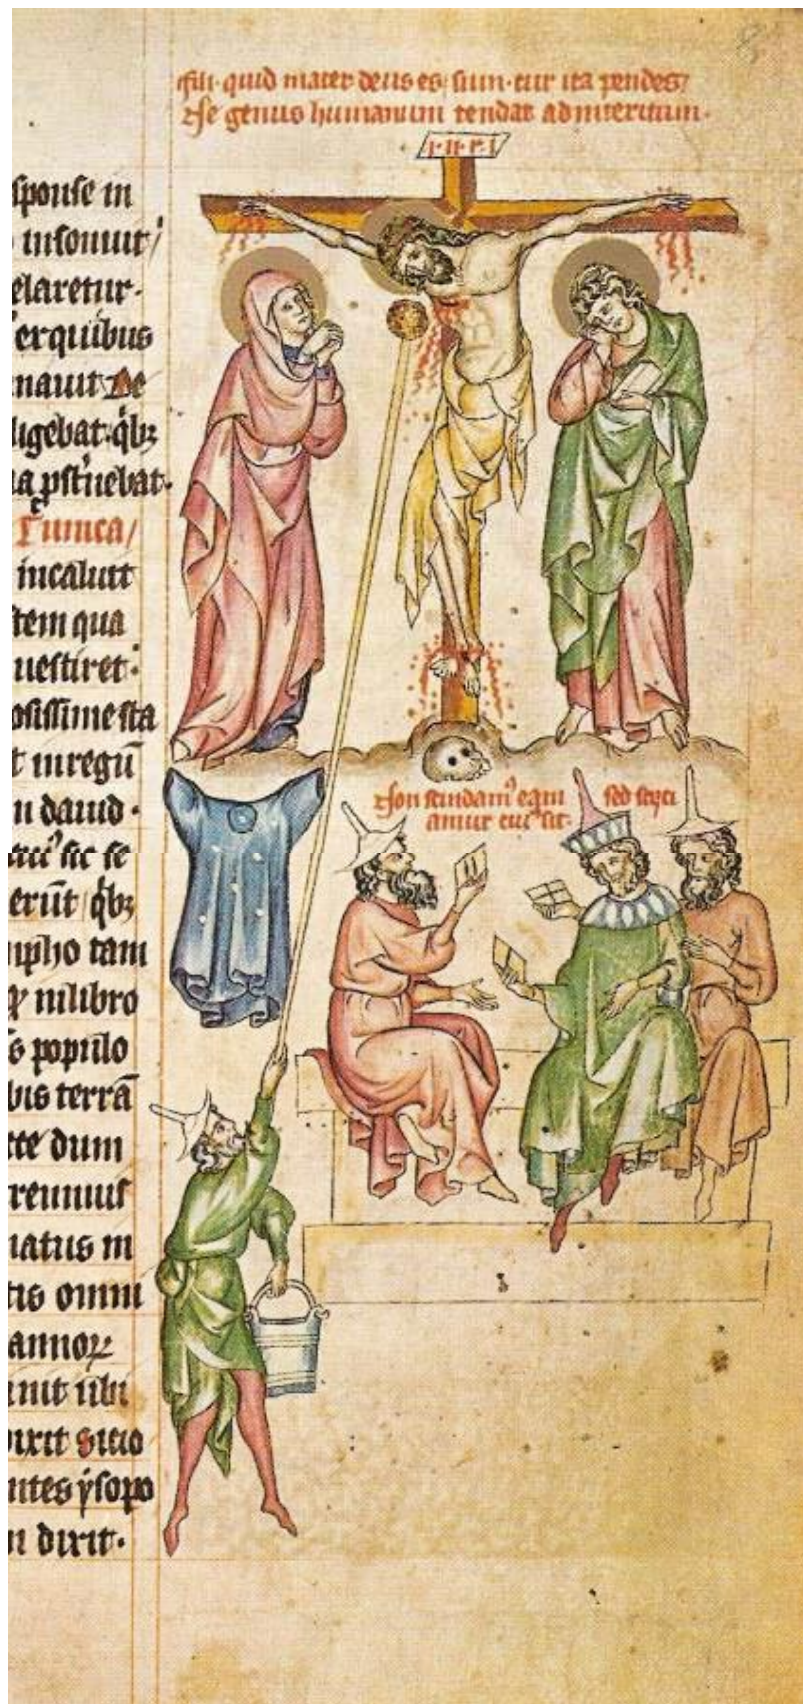 Fili· quid mater deus es· sum· cur ita pendes/
Ne genus humanum tendat ad interitum·
I·N·R·I
sponse in
insonuit/
elaretur·
erquibus
nauit De
ligebat·qb;
Tunica/
incaluit
tem qua
uestiret·
osissime sta
t in regū
n dauid·
sic se
erūt qb;
npho tam
in libro
s populo
bis terrā
te dum
reunius
natus in
tis omni
annoꝝ
nit ubi
dixit Sitio
ntes ysopo
n dixit·
Non scindam' eam sed sorti
amur cui' sit·